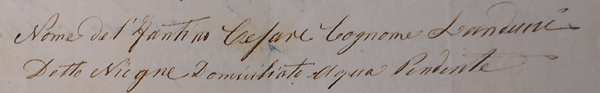 Nome del'Fantino Cesare Cognome Landini
Detto Nicgne Domiciliato Aqua Pendente